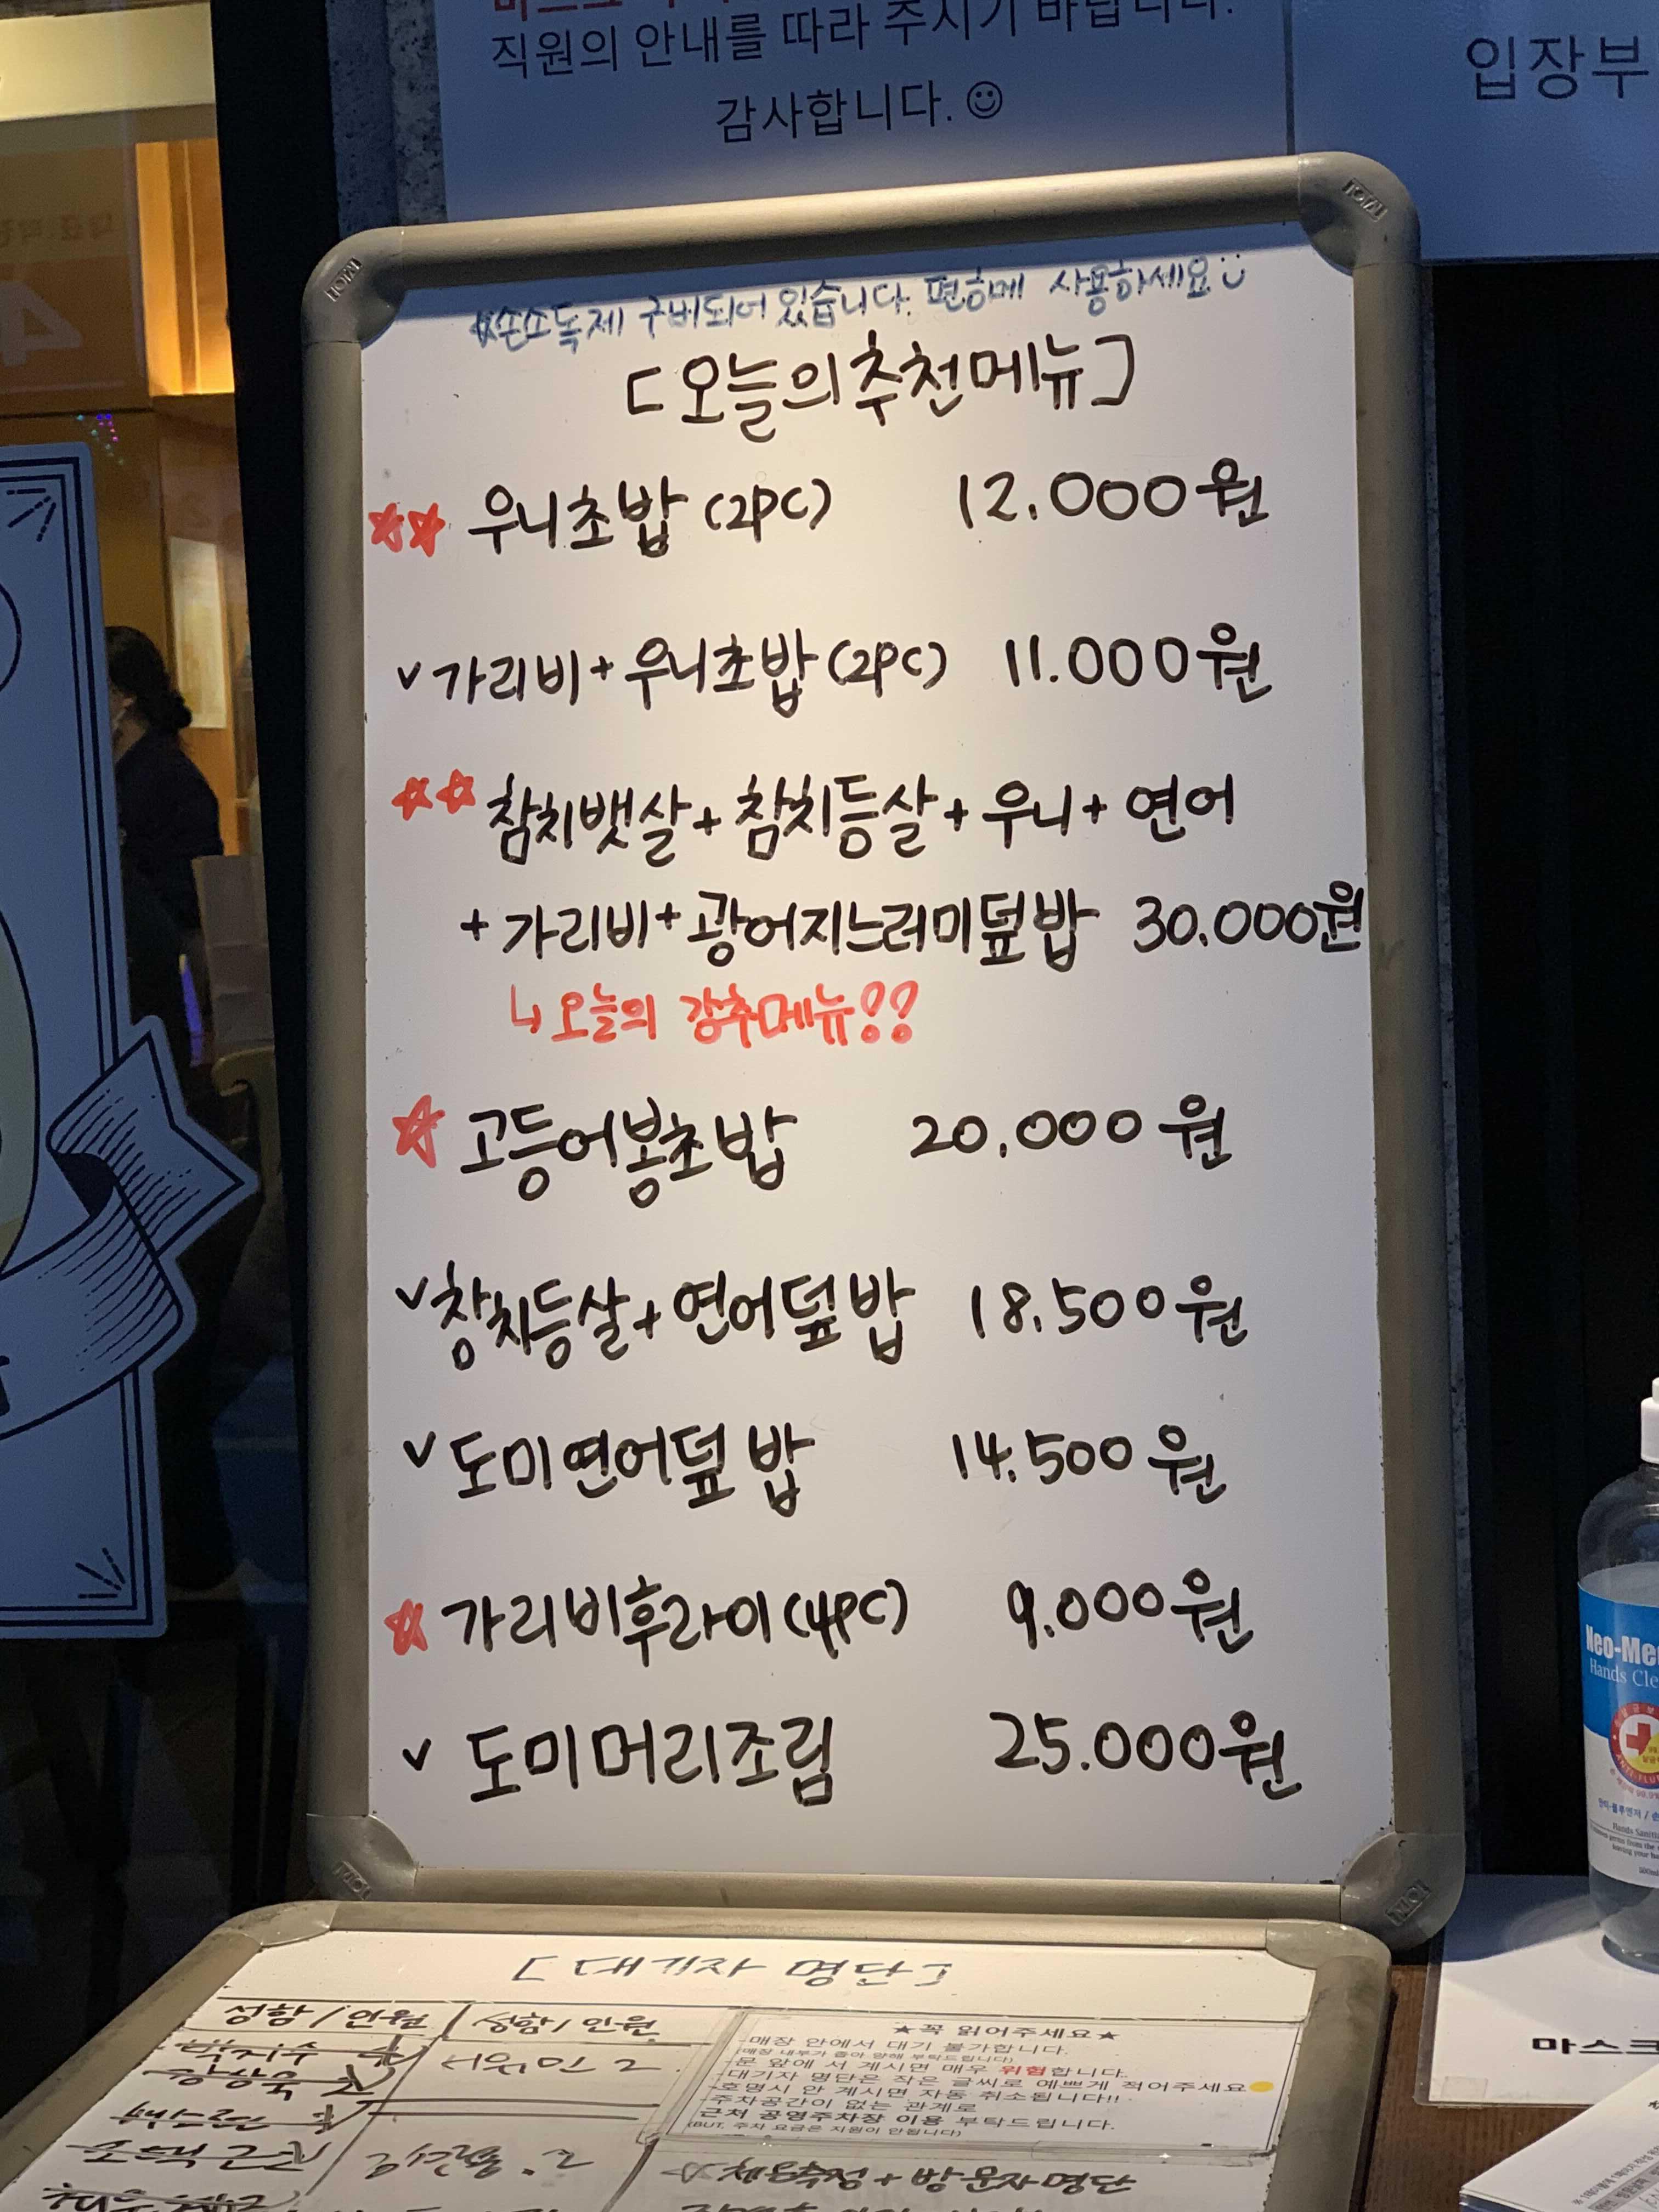 직원의 안내를 따라 주시기 바랍니다.
감사합니다. ☺
입장부
TOTAL
TOTAL
☆손소독제 구비되어 있습니다. 편하메 사용하세요
[오늘의추천메뉴]
☆☆ 우니초밥 (2PC) 12.000원
✓ 가리비+우니초밥 (2PC) 11.000원
☆☆ 참치뱃살+참치등살+우니+연어
+가리비+광어지느러미덮밥 30.000원
↳오늘의 강추메뉴!!
☆ 고등어봉초밥 20.000원
✓ 참치등살+연어덮밥 18.500원
✓ 도미연어덮밥 14.500원
☆ 가리비후라이(4PC) 9.000원
✓ 도미머리조림 25.000원
TOTAL
TOTAL
Neo-Me
Hands Cle
[대기자 명단]
성함/인원 성함/인원
박지수
서위민 2
★꼭 읽어주세요★
-매장 안에서 대기 불가합니다.
(매장 내부가 좁아 양해 부탁드립니다)
-문 앞에 서 계시면 매우 위험합니다.
-대기자 명단은 작은 글씨로 예쁘게 적어주세요
-호명시 안 계시면 자동 취소됩니다!!
주차공간이 없는 관계로
근처 공영주차장 이용 부탁드립니다.
(BUT, 주차 요금은 지원이 안됩니다)
☆체온측정+방문자명단
마스크